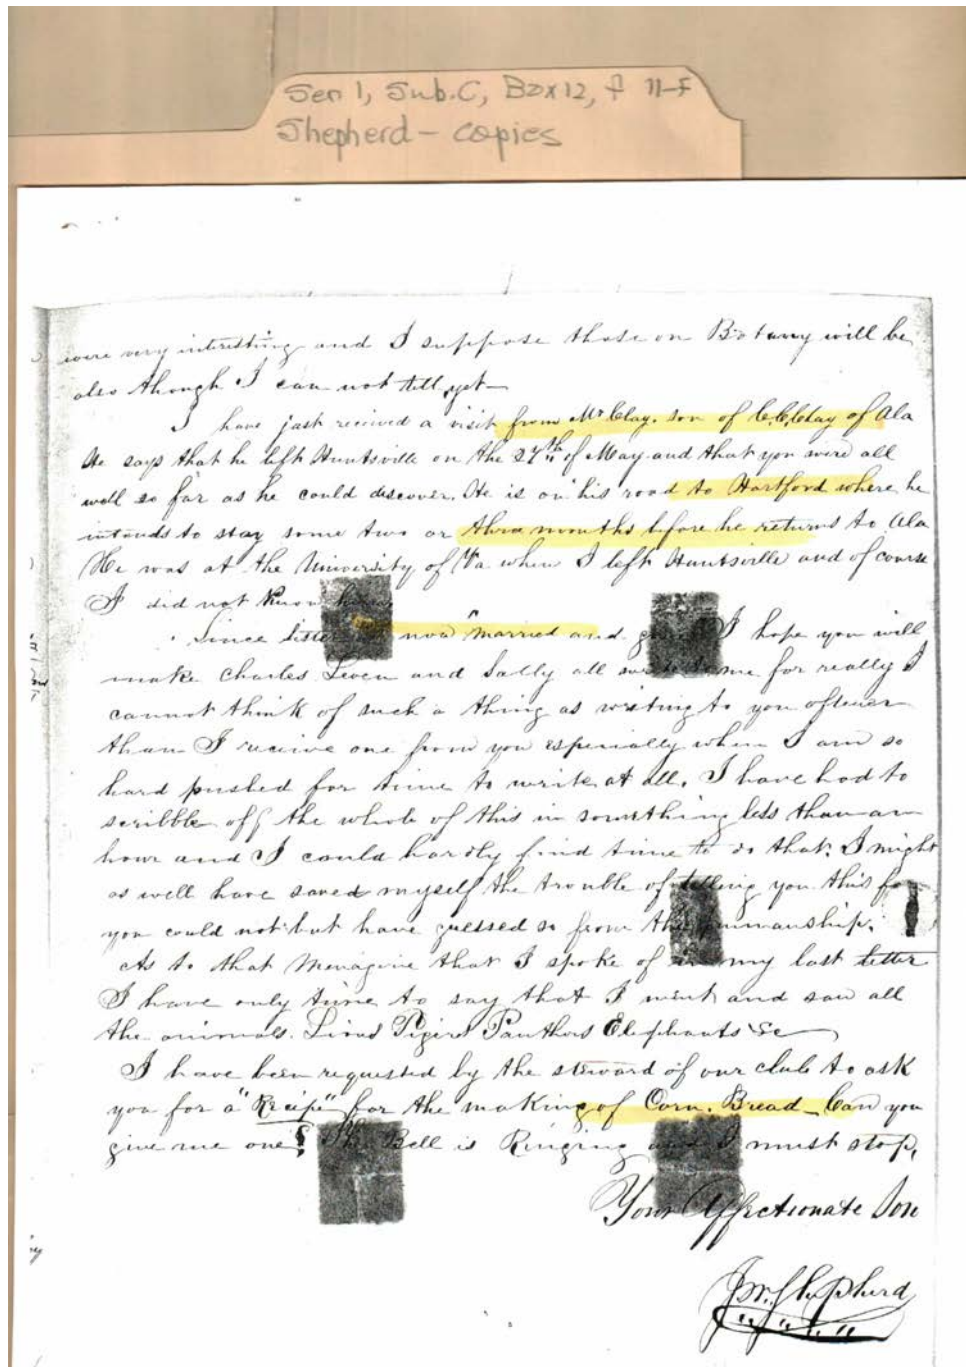 Ser 1, Sub.C, Box 12, f 11-F
Shepherd - copies
were very interesting and I suppose those on Botany will be
also though I can not till yet
I have just received a visit from Mr Clay. son of C.C.Clay of Ala
He says that he left Huntsville on the 27th of May and that you were all
well so far as he could discover. He is on his road to Hartford where he
intends to stay some two or three months before he returns to Ala
He was at the University of Va when I left Huntsville and of course
I did not know him
Since now married and I hope you will
make Charles Leven and Sally all write to me for really I
cannot think of such a thing as writing to you oftener
than I receive one from you especially when I am so
hard pushed for time to write at all. I have had to
scribble off the whole of this in something less than an
hour and I could hardly find time to do that. I might
as well have saved myself the trouble of telling you this for
you could not but have guessed so from the penmanship.
As to that Menagine that I spoke of in my last letter
I have only time to say that I went and saw all
the animals. Lions Tigers Panthers Elephants &c
I have been requested by the steward of our club to ask
you for a "Recipe" for the making of Corn. Bread - Can you
give me one? The Bell is Ringing and I must stop.
Your Affectionate Son
Shepherd